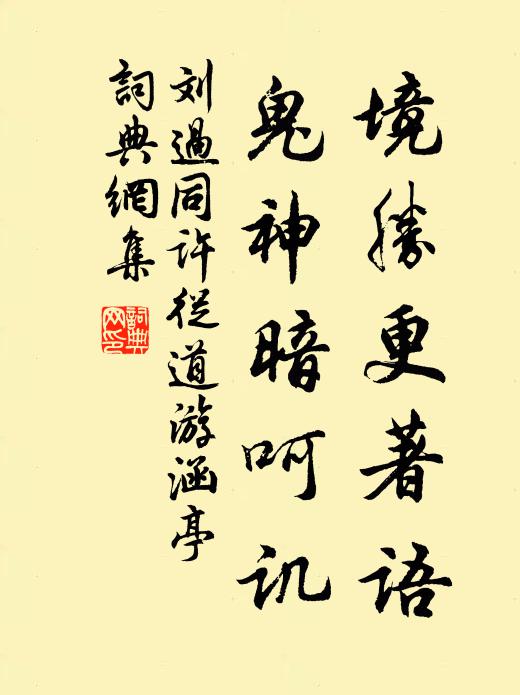 境勝更著語
鬼神暗呵讥
刘過同许從道游涵亭
詞典網集
詞典网印